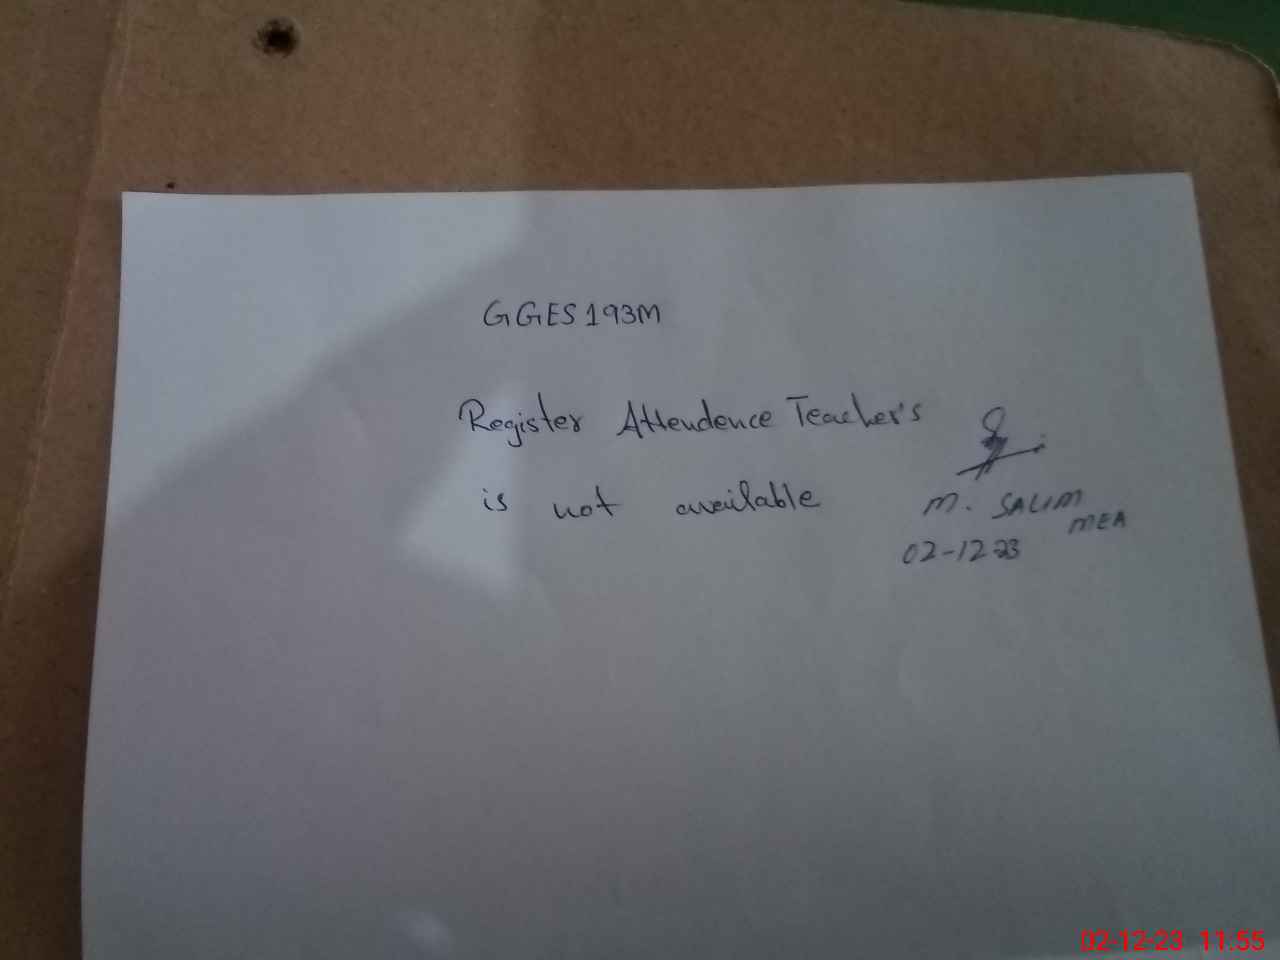 GGES 193M
Register Attendence Teacher's
is not available
M. SALIM
MEA
02-12-23
02-12-23 11:55